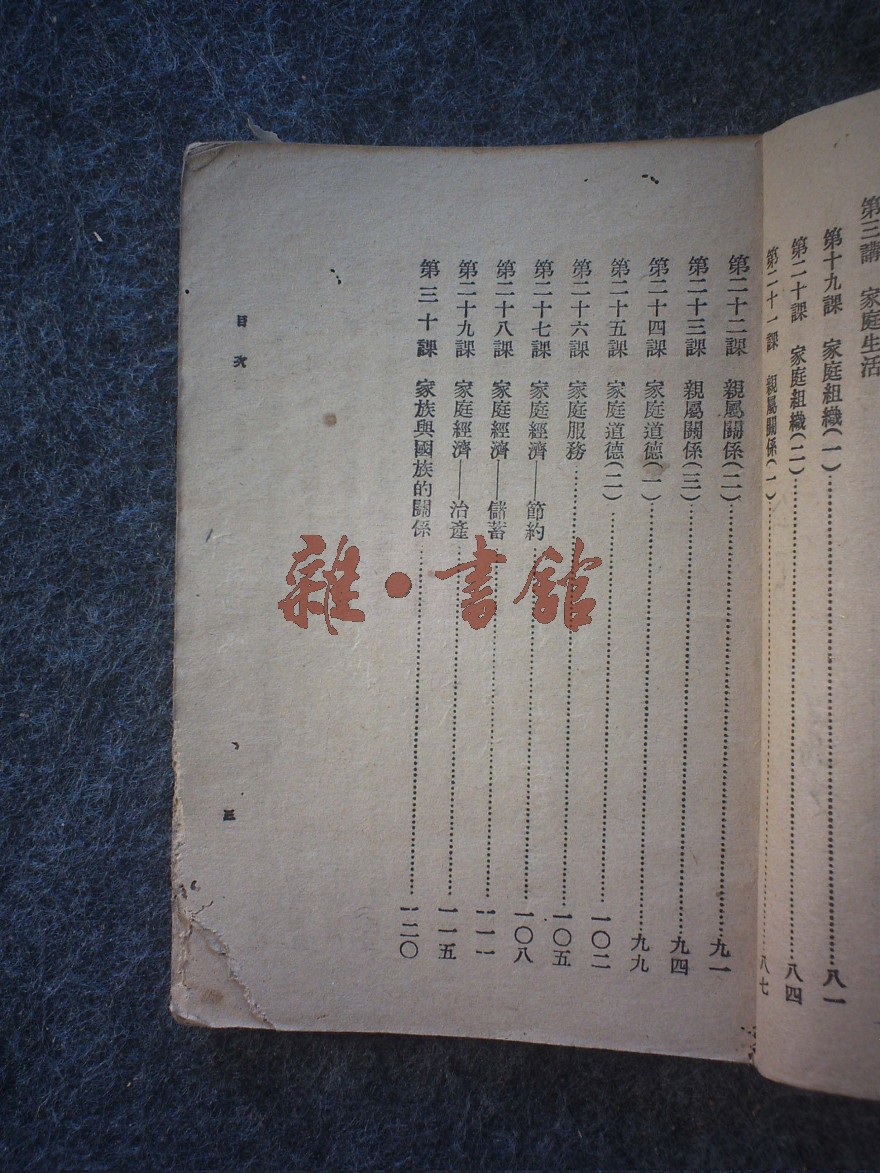 第三講　家庭生活
第十九課　家庭組織(一)……八一
第二十課　家庭組織(二)……八四
第二十一課　親屬關係(一)……八七
第二十二課　親屬關係(二)……九一
第二十三課　親屬關係(三)……九四
第二十四課　家庭道德(一)……九九
第二十五課　家庭道德(二)……一〇二
第二十六課　家庭服務……一〇五
第二十七課　家庭經濟——節約……一〇八
第二十八課　家庭經濟——儲蓄……一一一
第二十九課　家庭經濟——治產……一一五
第三十課　家族與國族的關係……一二〇
目次
三
雜·書館